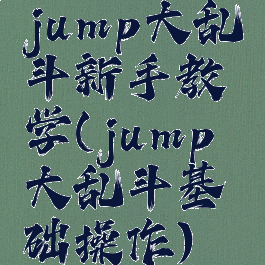 jump大乱
斗新手教
学(jump
大乱斗基
础操作)